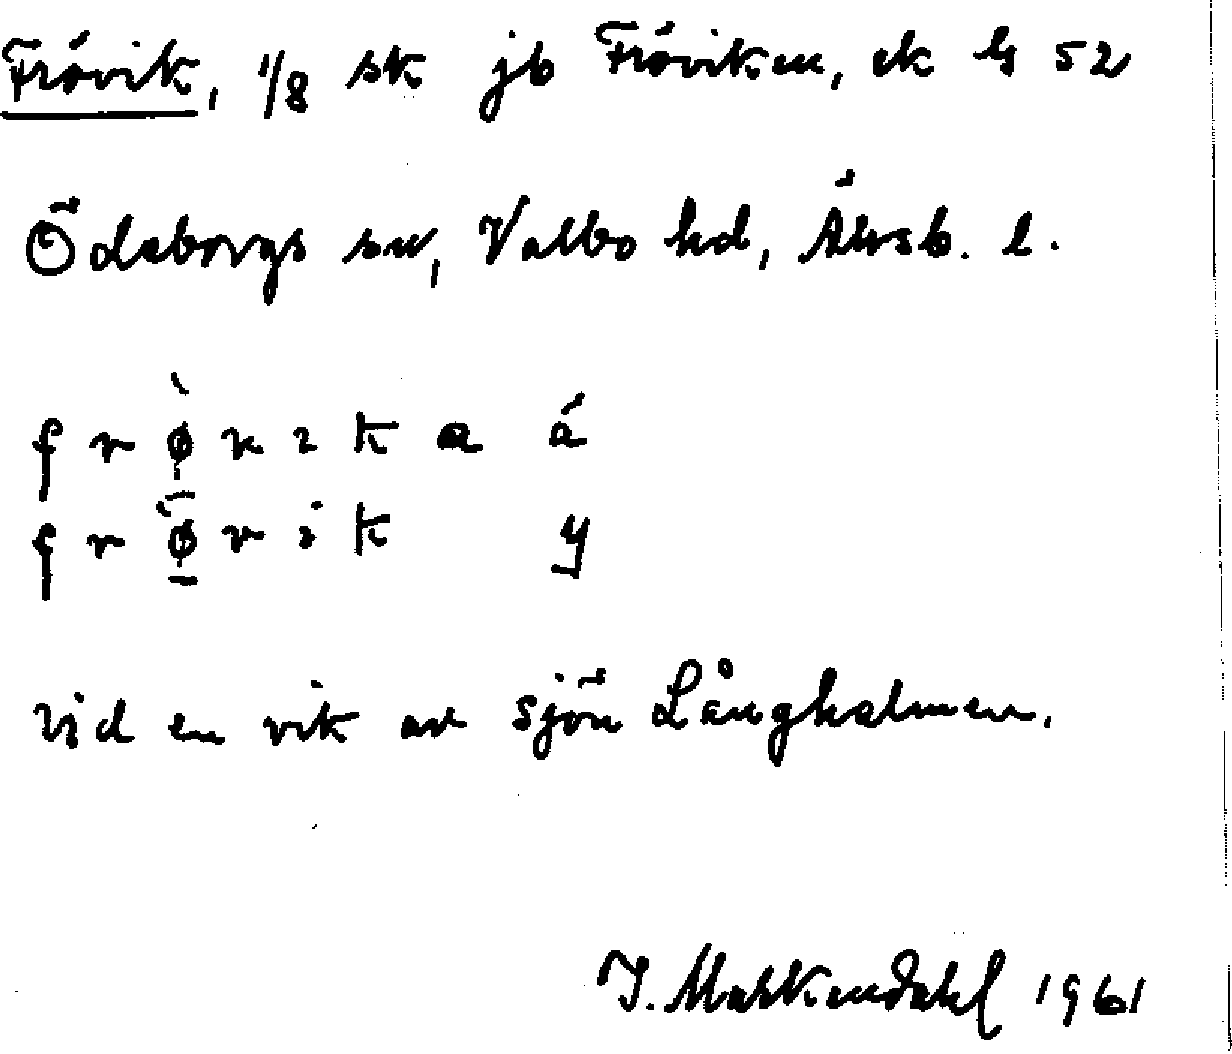 Frövik, 1/8 sk jb Fröviken, ek bl 52
Ödeborgs sn, Valbo hd, Älvsb. l.
f r ø̀ v ı k a á
f r ø̀ v i k y
vid en vik av sjön Långhalmen.
J. Markendahl 1961